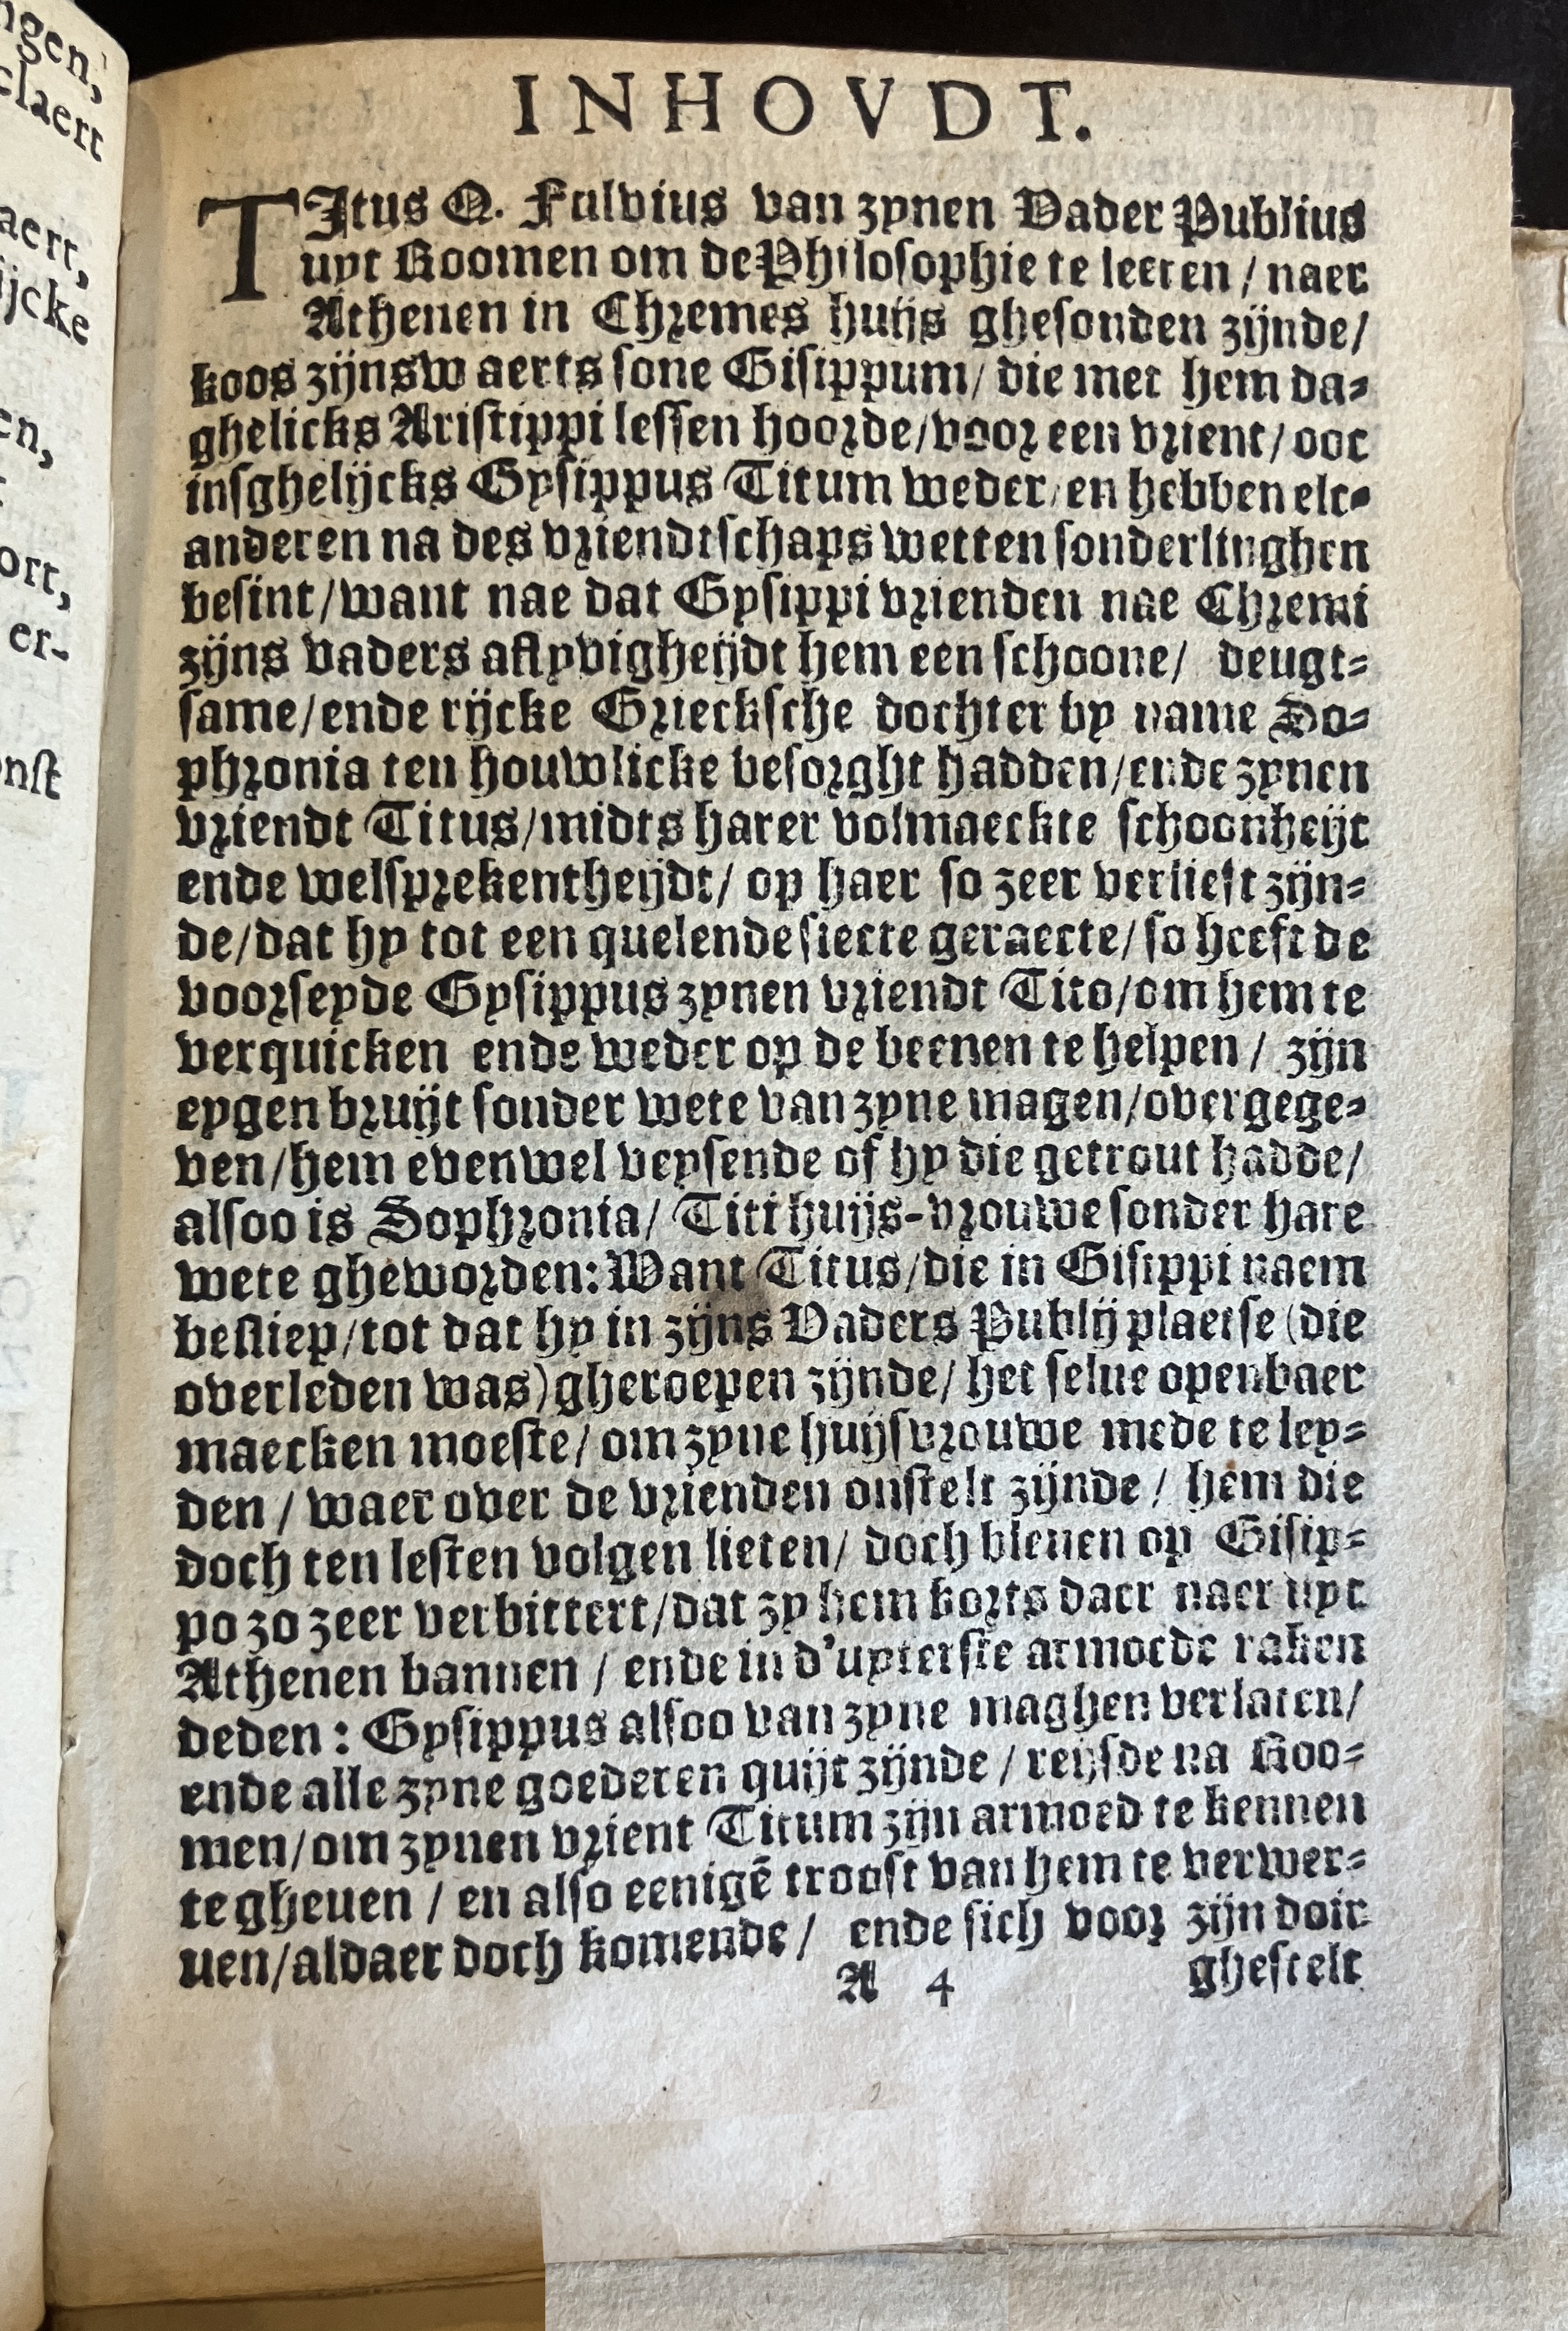 INHOVDT.
TItus Q. Fulvius van zynen Vader Publius
uyt Roomen om de Philosophie te leeren / naer
Athenen in Chremes huijs ghesonden zijnde/
koos zijnsw aerts sone Gisippum/ die met hem da-
ghelicks Aristippi lessen hoorde/voor een vrient/ ooc
insghelijcks Gysippus Titum weder/en hebben elc-
anderen na des vriendtschaps wetten sonderlinghen
besint/want nae dat Gysippi vrienden nae Chremi
zijns vaders aflyvigheijdt hem een schoone/ deugt-
same/ende rijcke Griecksche dochter by name So-
phronia ten houwlicke besorght hadden/ende zynen
vriendt Titus/midts harer volmaeckte schoonheijt
ende welsprekentheijdt/ op haer so zeer verlieft zijn-
de/dat hy tot een quelende siecte geraecte/so heeft de
voorseyde Gysippus zynen vriendt Tito/om hem te
verquicken ende weder op de beenen te helpen / zijn
eygen bruijt sonder wete van zyne magen/overgege-
ven/hem evenwel veysende of hy die getrout hadde/
alsoo is Sophronia/ Titi huijs-vrouwe sonder hare
wete gheworden: Want Titus/die in Gisippi naem
besliep/tot dat hy in zijns Vaders Publij plaetse (die
overleden was)gheroepen zijnde/ het selue openbaer
maecken moeste/ om zyne huijsvrouwe mede te ley-
den / waer over de vrienden onstelt zijnde / hem die
doch ten lesten volgen lieten/ doch bleuen op Gisip-
po zo zeer verbittert/dat zy hem korts daer naer uyt
Athenen bannen / ende in d'uyterste armoede raken
deden : Gysippus alsoo van zyne maghen verlaten/
ende alle zyne goederen quijt zijnde / reijsde na Roo-
men/om zynen vrient Titum zijn armoed te kennen
te gheuen / en also eenigē troost van hem te verwer-
uen/aldaer doch komende / ende sich voor zijn doir
A 4 ghestelt
ngen,
claert
aert,
ijcke
en,
ort,
er-
nst